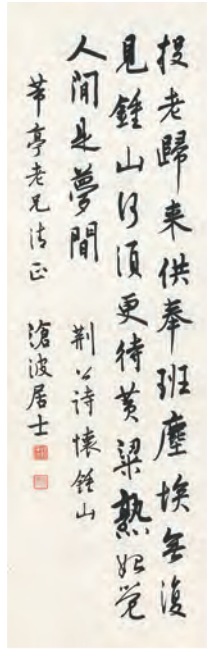 投老歸來供奉班塵埃無復
見鍾山何須更待黃粱熟始覺
人間是夢間 荊公詩懷鍾山
芾亭老兄清正 滄波居士